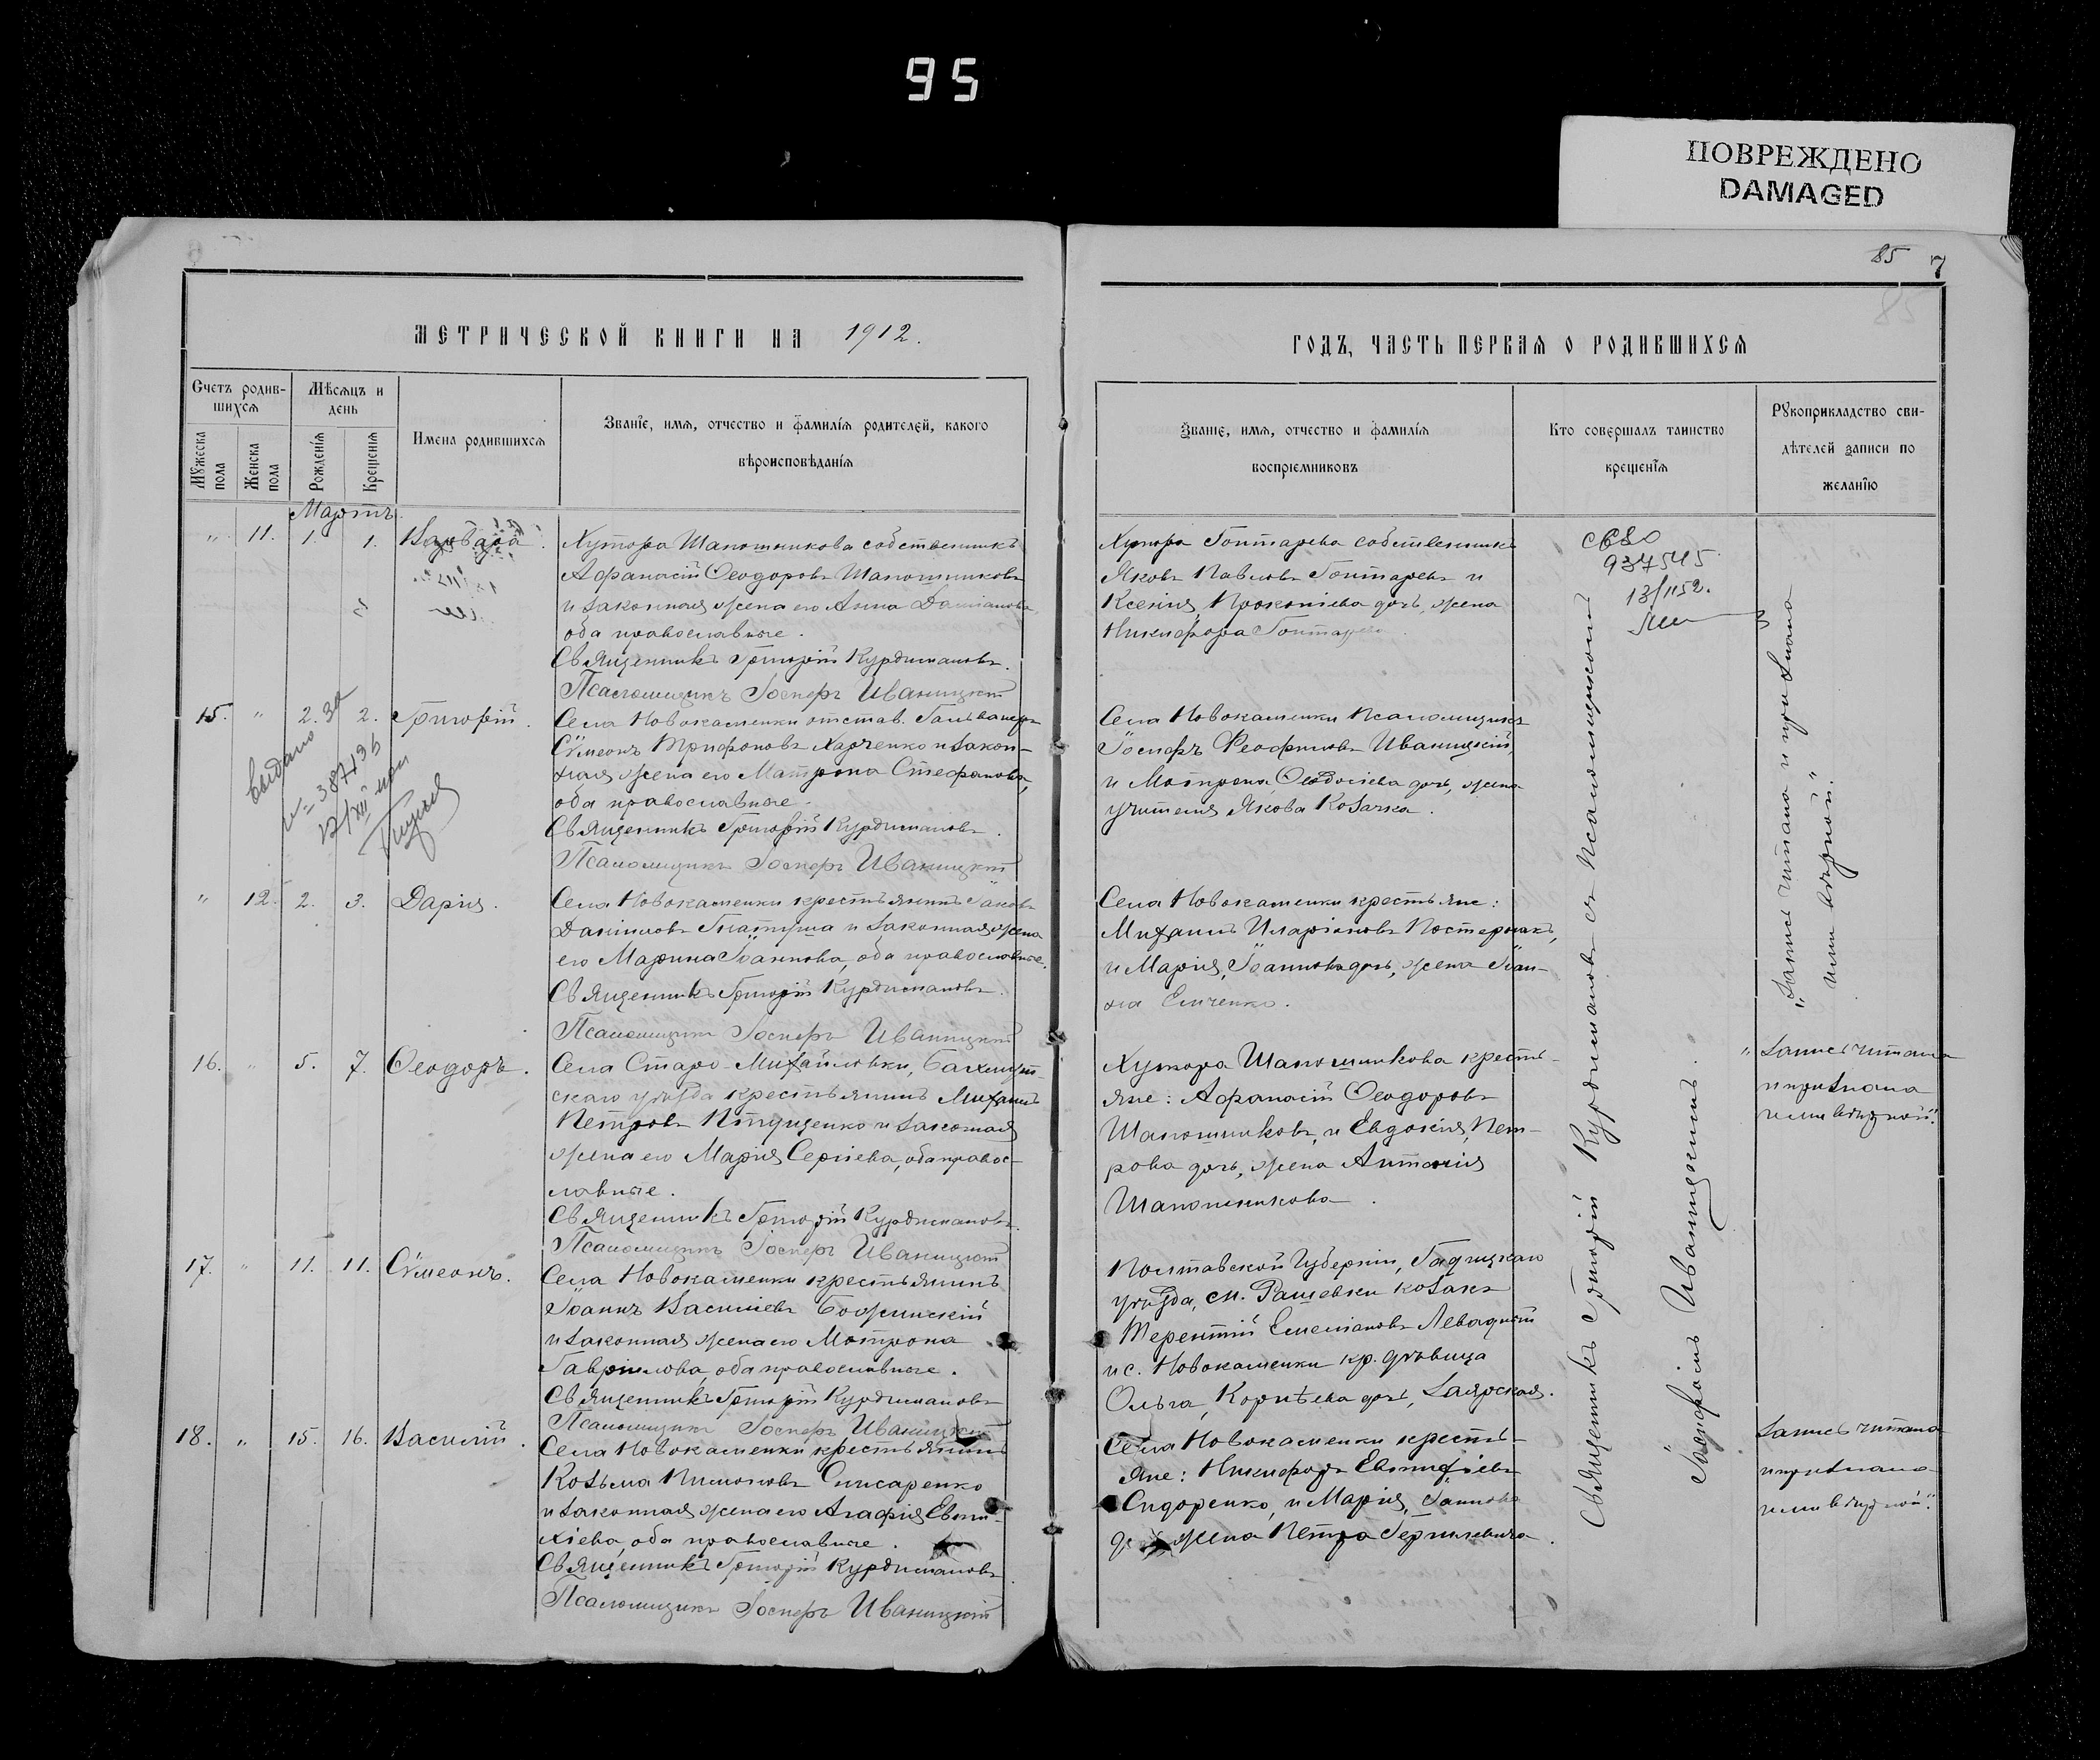 95
ПОВРЕЖДЕНО
DAMAGED
85 7
МЕТРИЧЕСКОЙ КНИГИ НА 1912.
Счетъ родив-
шихся
Мѣсяцъ и
день
Мужеска
пола
Женска
пола
Рожденія
Крещенія
Имена родившихся
Званіе, имя, отчество и фамилія родителей, какого
вѣроисповѣданія
Мартъ.
" 11. 1. 1. Варвара.
Хутора Шапошникова собственникъ
Афанасій Ѳеодоровъ Шапошниковъ
и законная жена его Анна Даміанова,
оба православные.
Священникъ Григорій Курдимановъ.
Псаломщикъ Іосифъ Иваницкій
15. " 2. 2. Григорій.
Села Новокаменки отстав.
Сѵмеонъ Трифоновъ Харченко и закон-
ная жена его Матрона Стефанова,
оба православные.
Священникъ Григорій Курдимановъ.
Псаломщикъ Іосифъ Иваницкій
Выдано
" 12. 2. 3. Дарія.
Села Новокаменки крестьянинъ Іаковъ
Даніиловъ и законная жена
его Марина Іоаннова, оба православные.
Священникъ Григорій Курдимановъ.
Псаломщикъ Іосифъ Иваницкій
16. " 5. 7. Ѳеодоръ.
Села Старо-Михайловки, Бахмут-
скаго уѣзда крестьянинъ Михаилъ
Петровъ и законная
жена его Марія Сергіева, оба правос-
лавные.
Священникъ Григорій Курдимановъ.
Псаломщикъ Іосифъ Иваницкій
17. " 11. 11. Сѵмеонъ.
Села Новокаменки крестьянинъ
Іоаннъ Василіевъ Божинскій
и законная жена его Матрона
Гавріилова, оба православные.
Священникъ Григорій Курдимановъ
Псаломщикъ Іосифъ Иваницкій
18. " 15. 16. Василій.
Села Новокаменки крестьянинъ
Козьма Пимоновъ Слисаренко
и законная жена его Агафія Евти-
хіева, оба православные.
Священникъ Григорій Курдимановъ.
Псаломщикъ Іосифъ Иваницкій
ГОДЪ, ЧАСТЬ ПЕРВАЯ О РОДИВШИХСЯ
Званіе, имя, отчество и фамилія
воспріемниковъ
Кто совершалъ таинство
крещенія
Рукоприкладство сви-
дѣтелей записи по
желанію
Хутора Гонтарева собственникъ
Яковъ Павловъ Гонтаревъ и
Ксенія, Прокопіева дочь, жена
Никифора Гонтарева.
937545
Села Новокаменки Псаломщикъ
Іосифъ Феофиловъ Иваницкій,
и Матрона, Ѳеодосіева дочь, жена
учителя Якова Козачка.
Села Новокаменки крестьяне:
Михаилъ Иларіоновъ Постернакъ,
и Марія, Іоаннова дочь, жена Іоан-
на Емченко.
Хутора Шапошникова кресть-
яне: Афанасій Ѳеодоровъ
Шапошниковъ, и Евдокія, Пет-
рова дочь, жена Антонія
Шапошникова.
Полтавской Губерніи, Гадячскаго
уѣзда, м. Рашевки козакъ
Терентій Емеліановъ Левадній
и с. Новокаменки кр. дѣвица
Ольга, Корнѣева дочь, Заярская.
Села Новокаменки кресть-
яне: Никифоръ Евтихіевъ
Сидоренко, и Марія, Іаннова
жена Петра
Священникъ Григорій Курдимановъ съ Псаломщикомъ
Іосифомъ Иваницкимъ.
„Запись читана и признана
ими вѣрной."
„Запись читана
и признана
ими вѣрной."
Запись читана
и признана
ими вѣрной."